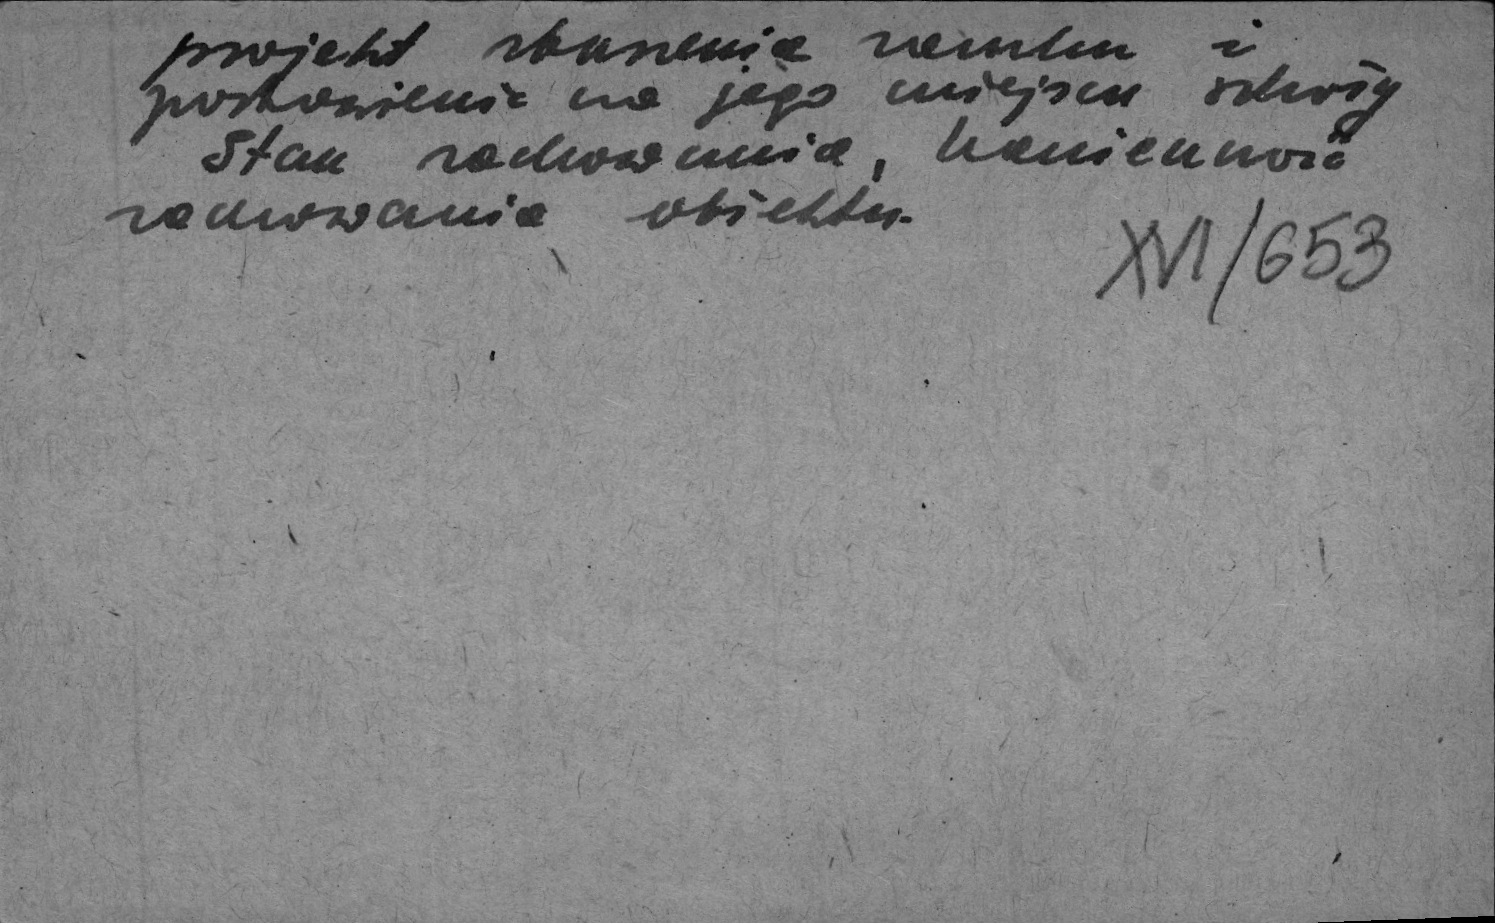 projekt zburzenia zamku i
postawienie na jego miejscu szkoły
Stan zachowania, konieczność
zachowania obiektu.
XVI/653